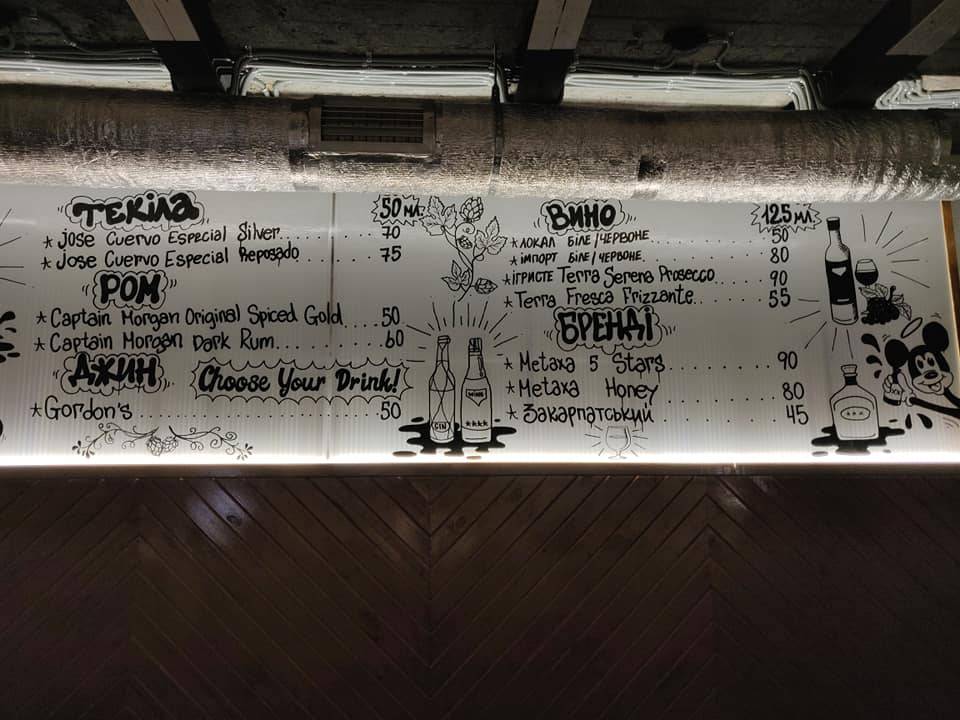 ТЕКІЛА 50 МЛ
* Jose Cuervo Especial Silver........ 70
* Jose Cuervo Especial Reposado........ 75
РОМ
* Captain Morgan Original Spiced Gold.... 50
* Captain Morgan Dark Rum............ 60
ДЖИН
Choose Your Drink!
* Gordon's........................ 50
GIN
WINE
ВИНО 125 МЛ
* ЛОКАЛ БІЛЕ/ЧЕРВОНЕ............ 50
* ІМПОРТ БІЛЕ/ЧЕРВОНЕ............ 80
* ІГРИСТЕ Terra Serena Prosecco...... 90
* Terra Fresca Frizzante........ 55
БРЕНДІ
* Metaxa 5 Stars............ 90
* Metaxa Honey............ 80
* Закарпатський............ 45